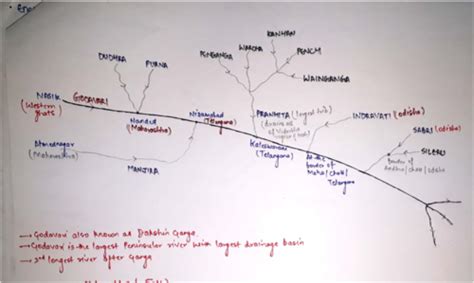 DUDHNA
PURNA
PENGANGA
WARDHA
KANHAN
PENCH
WAINGANGA
NASIK
(Western
ghats)
GODAVARI
Nanded
(Maharashtra)
Nizamabad
(Telangana)
PRANHITA (largest trib)
(drains all
of Vidarbha
region
Kaleshwaram
(Telangana)
INDRAVATI (Odisha)
At the
border of
Maha/Chatt/
Telangana
SABRI (Odisha)
SILERU
Border of
Andhra/Chatt/Odisha
Ahmednagar
(Maharashtra)
MANJIRA
→ Godavari also known as Dakshin Ganga.
→ Godavari is the largest Peninsular river with largest drainage basin
→ 2nd longest river after Ganga